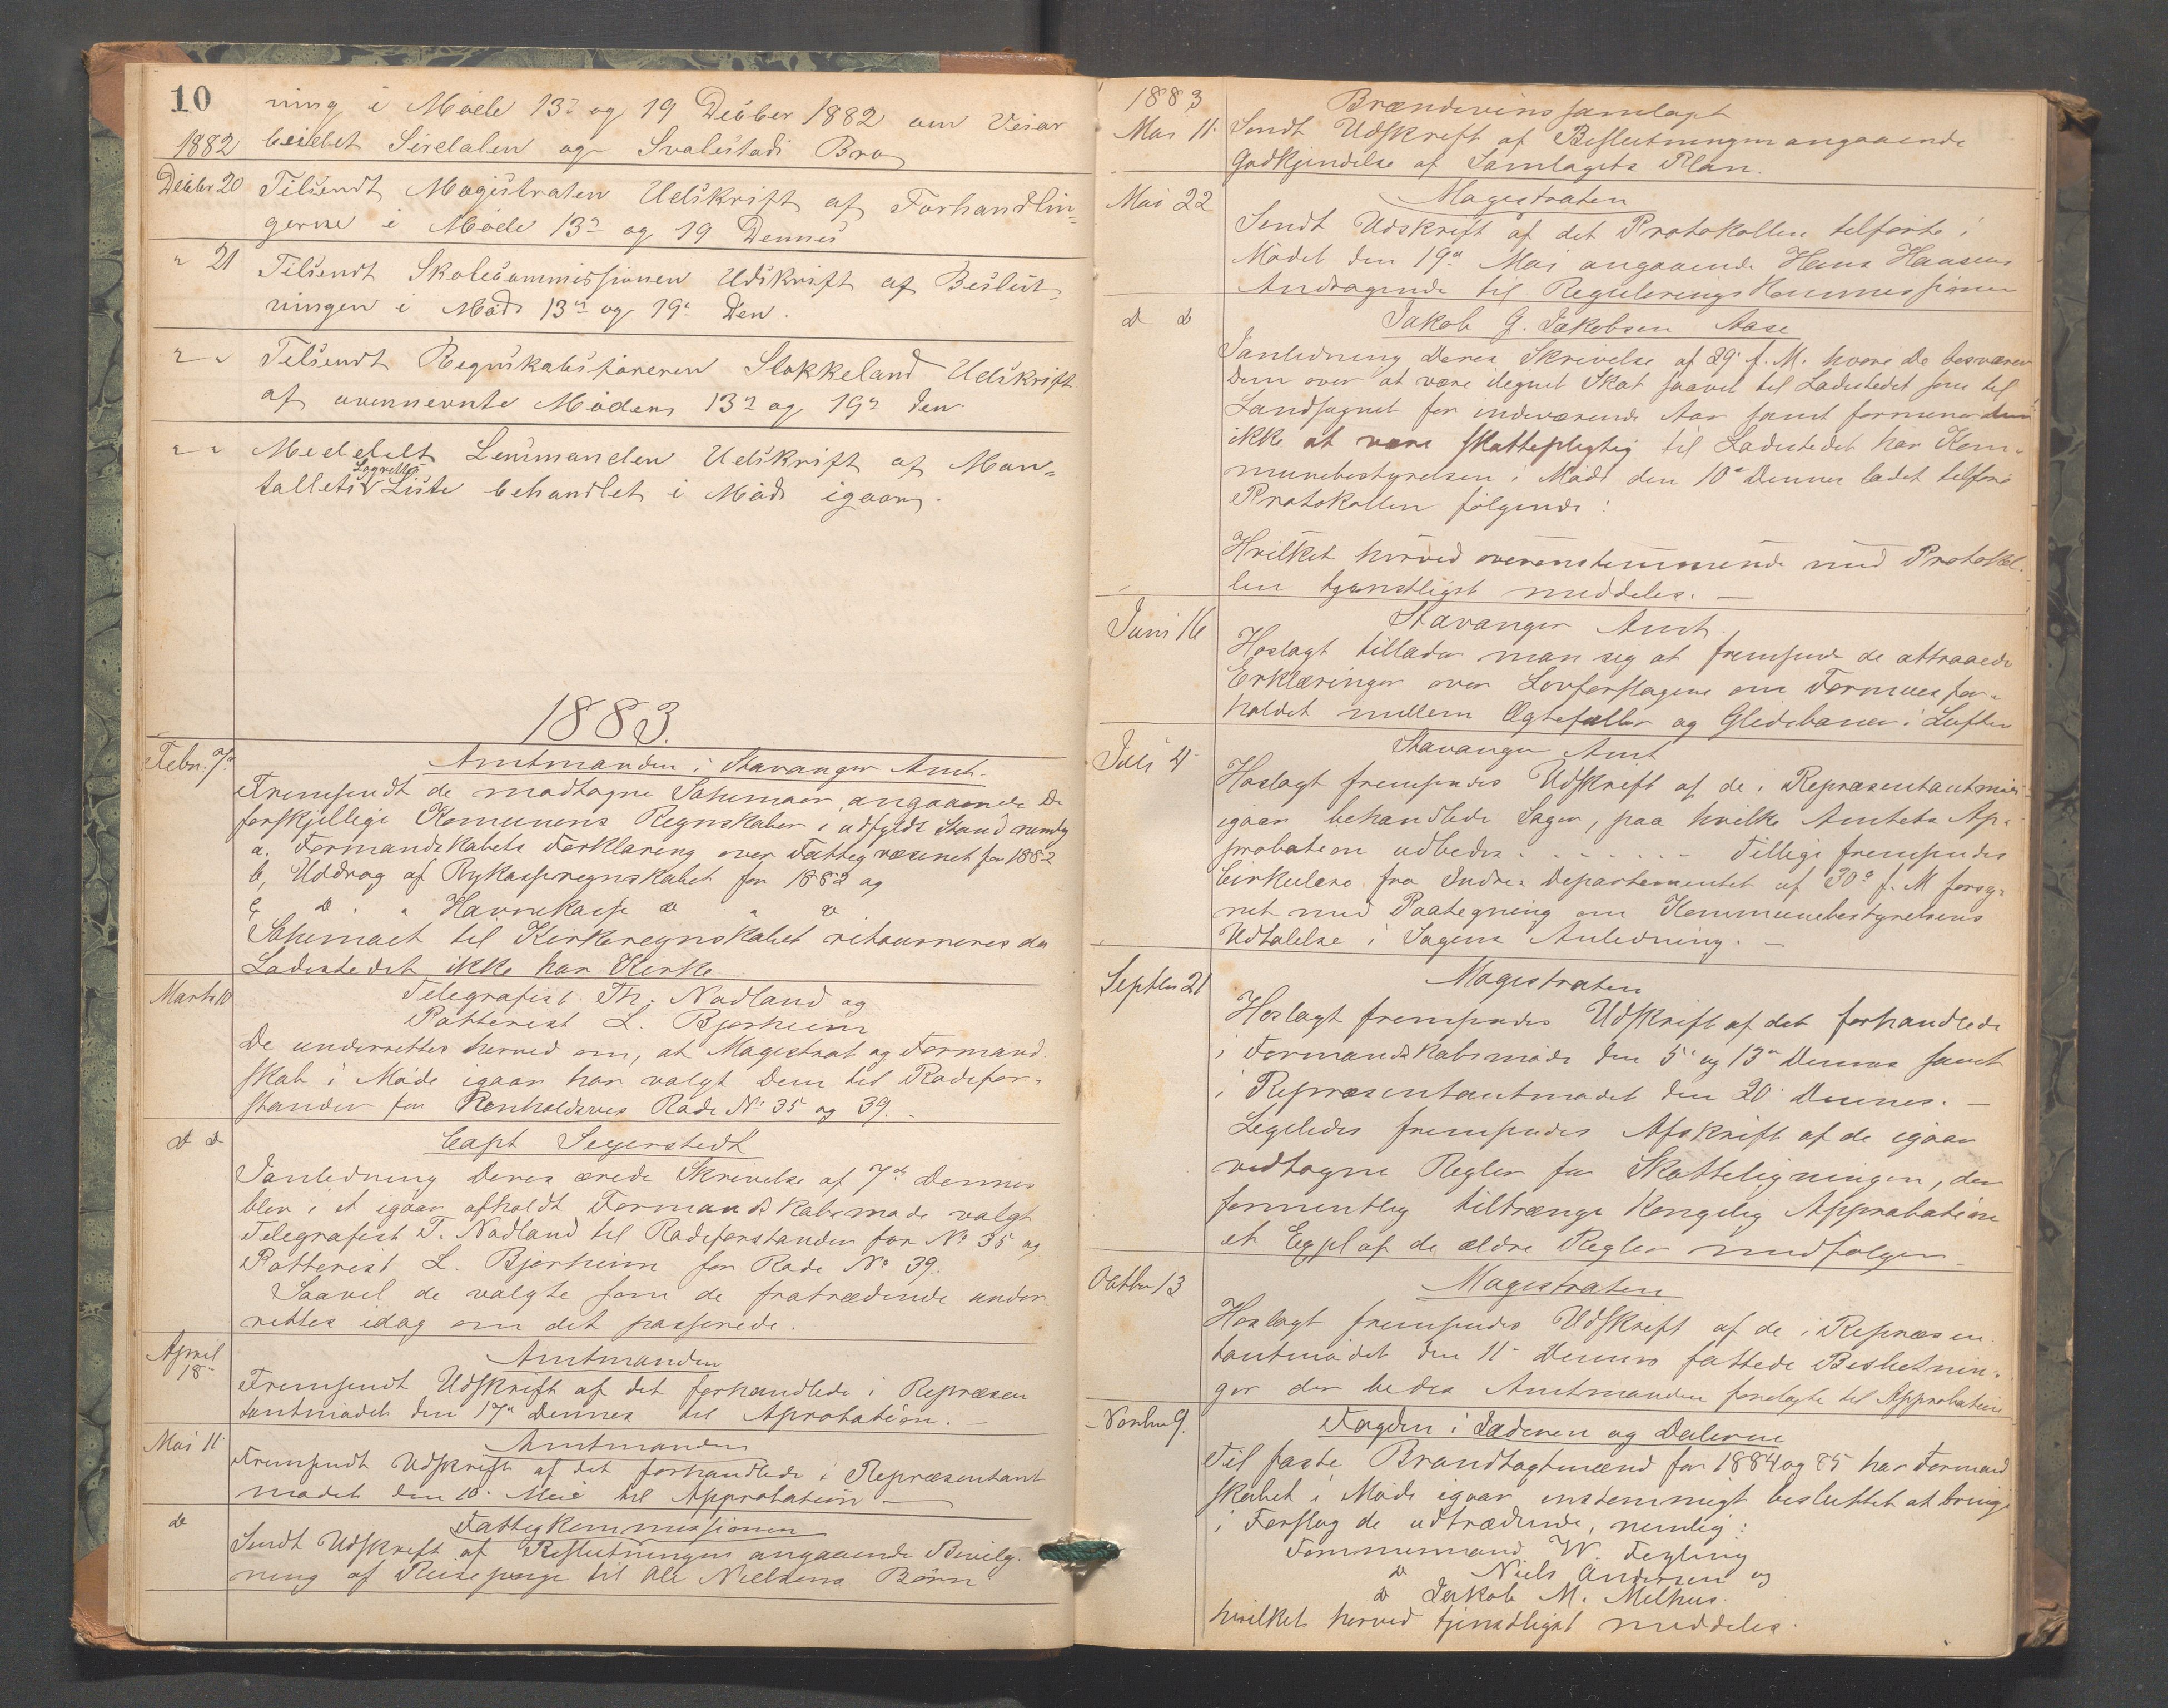 10
ning i Møde 13de og 19 Decbber 1882 om Veiar
1882 beidet Siredalen og Svalestads Bro
Decbber 20 Tilsendt Magistraten Udskrift af Forhandlin-
gerne i Møde 13de og 19 Dennes
" 21 Tilsendt Skolecommissionen Udskrift af Beslut-
ningen i Møde 13de og 19de Den.
" " Tilsendt Regnskabsføreren Stokkeland Udskrift
af ovennevnte Møder 13de og 19de den.
" " Meddelt Lensmanden Udskrift af Man-
tallets Lagretts Liste behandlet i Møde igaar.
1883.
Febr. 7de Amtmanden i Stavanger Amt.
Fremsendt de modtagne Schemaer angaaende De
forskjellige Komunens Regnskaber i udfyldt Stand nemlig
a. Formandskabets Forklaring over Fattigvæsenet for 1882
b, Uddrag af Bykasseregnskabet for 1882 og
c, do. " Havnekasse do " do.
Schemaet til Kirkeregnskabet retourneres da
Ladestedet ikke har Kirke
Marts 10 Telegrafist Th. Nodland og
Potterist L. Bjerheim
De underrettes herved om, at Magistrat og Formand-
skab i Møde igaar har valgt Dem til Rodefor-
stander for Renholdsvæs Rode No 35 og 39. -
do do Capt Segerstedt
I anledning Deres ærede Skrivelse af 7de dennes
blev i et igaar afholdt Formandskabsmøde valgt
Telegrafist T. Nodland til Rodeforstander for No 35 og
Potterist L. Bjerheim for Rode No 39.
Saavel de valgte som de fratrædende under-
rettes idag om det passerede.
April 18de Amtmanden
Fremsendt Udskrift af det forhandlede i Repræsen
tantmødet den 17de dennes til Aprobation. -
Mai 11 Amtmanden
Fremsendt Udskrift af det forhandlede i Repræsentant
mødet den 10. Mai til Approbation -
do Fattigkommissionen
Sendt Udskrift af Beslutningen angaaende Bevilg-
ning af Reisepenge til Ole Nielsens Børn
1883 Brændevinssamlaget
Mai 11. Sendt Udskrift af Beslutningen angaaende
Godkjendelse af Samlagets Plan.
Mai 22 Magistraten
Sendt Udskrift af det Protokollen tilførte i
Mødet den 19de Mai angaaende Hans Hansens
Andragende til Reguleringskommissionen
do do Jakob G. Jakobsen Aase
I anledning Deres Skrivelse af 29. f. M. hvori De besværer
Dem over at være ilignet Skat saavel til Ladestedet som til
Landsognet for indeværende Aar samt formener dem
ikke at være skattepligtig til Ladestedet har Kom-
munebestyrelsen i Møde den 10de Dennes ladet tilføre
Protokollen følgende:
Hvilket herved overenstemmende med Protokol-
len tjenstligst meddeles. -
Juni 16 Stavanger Amt.
Hoslagt tillader man sig at fremsende de attraaede
Erklæringer over Lovforslagene om Formuesfor-
holdet mellem Ægtefæller og Glidebaner i Luften
Juli 4 Stavanger Amt
Hoslagt fremsendes Udskrift af de i Repræsentantmøde
igaar behandlede Sager, paa hvilke Amtets Ap-
probation udbedes. - - - - - - Tillige fremsendes
Cirkulære fra Indre-Departementet af 30de f. M forsy-
net med Paategning om Kommunebestyrelsens
Udtalelse i Sagens Anledning. -
Septbr 21 Magistraten
Hoslagt fremsendes Udskrift af det forhandlede
i Formandskabsmøde den 5de og 13de Dennes samt
i Repræsentantmødet den 20. Dennes. -
Ligeledes fremsendes Afskrift af de igaar
vedtagne Regler for Skatteligningen, der
formentlig tiltrænge Kongelig Approbation
et Expl af de ældre Regler medfølger
Octbr 13 Magistraten
Hoslagt fremsendes Udskrift af de i Repræsen-
tantmødet den 11te Dennes fattede Beslutnin-
ger der bedes Amtmanden forelagte til Approbation
Novbr 9. Fogden i Jæderen og Dalerne
Til faste Brandtagtmænd for 1884 og 85 har Formand
skabet i Møde igaar enstemmigt besluttet at bringe
i Forslag de udtrædende, nemlig:
Tømmermand W. Fegling
do Niels Andersen og
do Jakob M. Melhus.
hvilket herved tjenstligst meddeles.